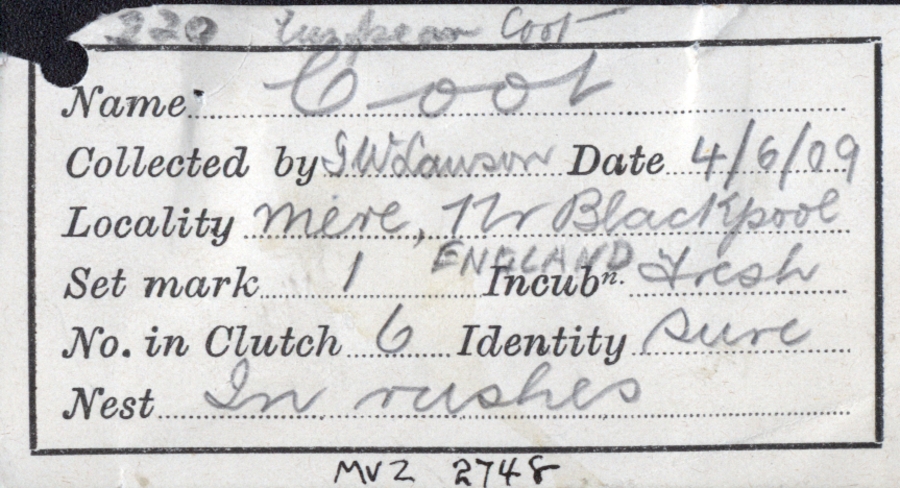 220 European Coot
Name Coot
Collected by G W Lawson Date 4/6/09
Locality Mere, Nr Blackpool
ENGLAND
Set mark 1 Incubn. Fresh
No. in Clutch 6 Identity Sure
Nest In rushes
MVZ 2748